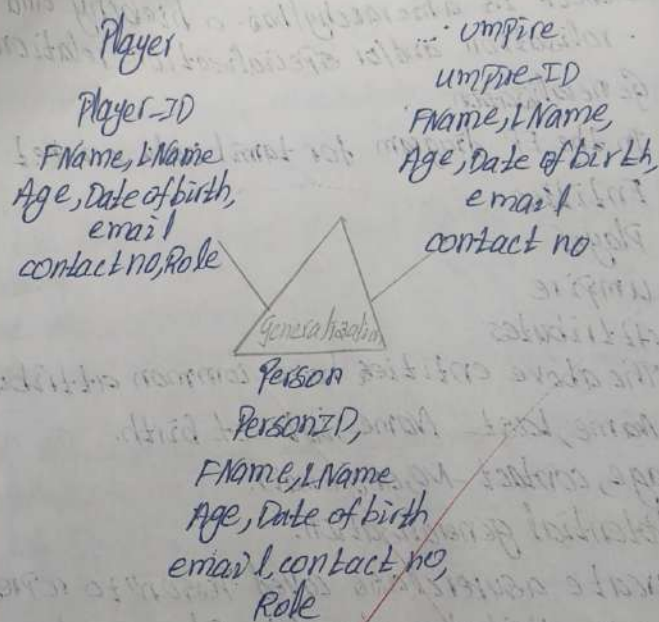 Player
Player-ID
FName, LName
Age, Date of birth,
email
contact no, Role
... umpire
umpire-ID
FName, LName,
Age, Date of birth,
email
contact no
Generalization
Person
PersonID,
FName, LName
Age, Date of birth
email, contact no,
Role